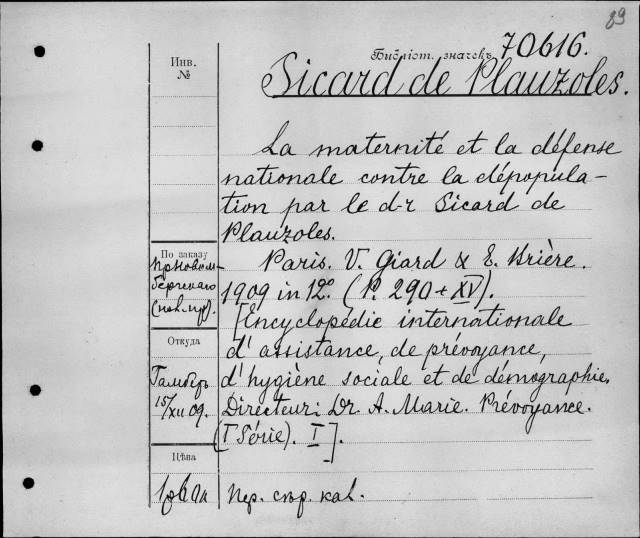 89
Инв.
№
Библіот. значекъ 70616.
Sicard de Plauzoles.
La maternité et la défense
nationale contre la dépopula-
tion par le d-r Sicard de
Plauzoles.
По заказу
Paris. V. Giard & E. Brière.
1909 in 12º. (P. 290 + XV).
[Encyclopédie internationale
d'assistance, de prévoyance,
d'hygiène sociale et de démographie.
Directeur: Dr. A. Marie. Prévoyance.
(I Série). I].
Откуда
Гамберъ
15/XII 09.
Цѣна